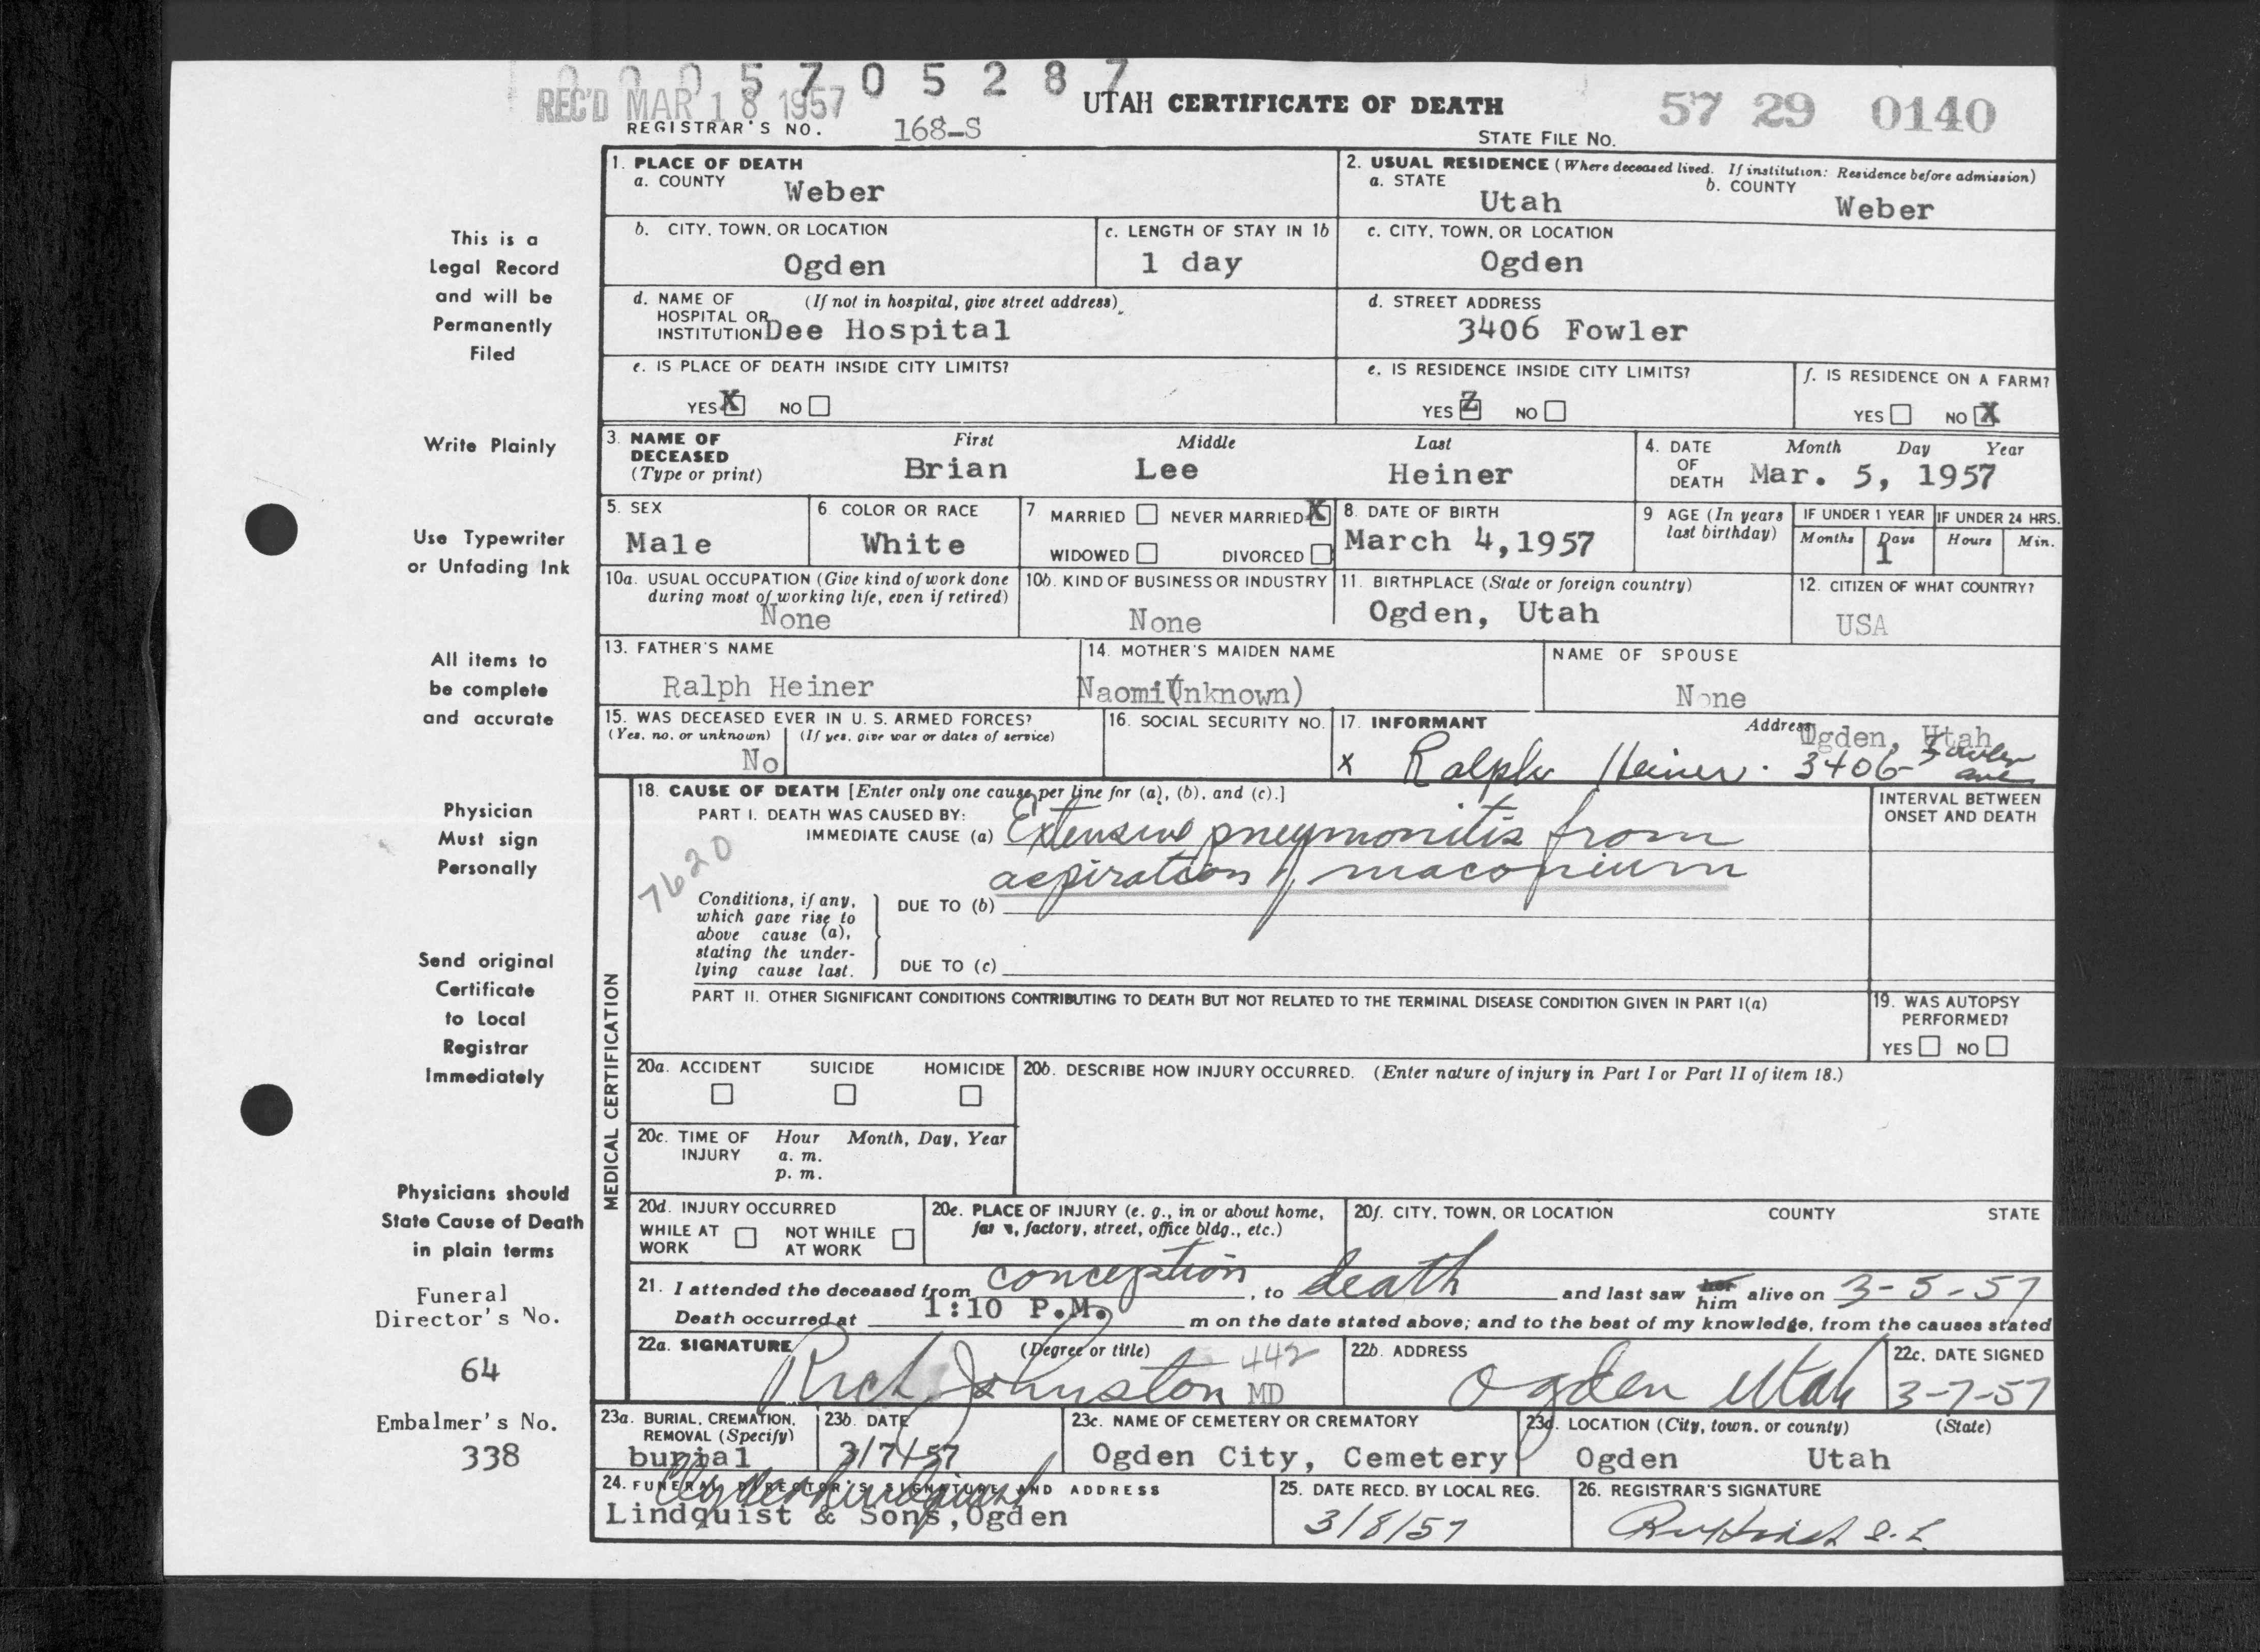 0005705287
REC'D MAR 18 1957
UTAH CERTIFICATE OF DEATH
57 29 0140
REGISTRAR'S NO. 168-S
STATE FILE No.
This is a
Legal Record
and will be
Permanently
Filed
Write Plainly
Use Typewriter
or Unfading Ink
All items to
be complete
and accurate
Physician
Must sign
Personally
Send original
Certificate
to Local
Registrar
Immediately
Physicians should
State Cause of Death
in plain terms
Funeral
Director's No.
64
Embalmer's No.
338
1. PLACE OF DEATH
a. COUNTY Weber
2. USUAL RESIDENCE (Where deceased lived. If institution: Residence before admission)
a. STATE Utah b. COUNTY Weber
b. CITY, TOWN, OR LOCATION Ogden
c. LENGTH OF STAY IN 1b 1 day
c. CITY, TOWN, OR LOCATION Ogden
d. NAME OF HOSPITAL OR INSTITUTION (If not in hospital, give street address) Dee Hospital
d. STREET ADDRESS 3406 Fowler
e. IS PLACE OF DEATH INSIDE CITY LIMITS?
YES X NO
e. IS RESIDENCE INSIDE CITY LIMITS?
YES Z NO
f. IS RESIDENCE ON A FARM?
YES NO X
3. NAME OF DECEASED (Type or print)
First Middle Last
Brian Lee Heiner
4. DATE OF DEATH Month Day Year
Mar. 5, 1957
5. SEX Male
6. COLOR OR RACE White
7 MARRIED NEVER MARRIED X
WIDOWED DIVORCED
8. DATE OF BIRTH March 4,1957
9 AGE (In years last birthday)
IF UNDER 1 YEAR IF UNDER 24 HRS.
Months Days Hours Min.
1
10a. USUAL OCCUPATION (Give kind of work done during most of working life, even if retired) None
10b. KIND OF BUSINESS OR INDUSTRY None
11. BIRTHPLACE (State or foreign country) Ogden, Utah
12. CITIZEN OF WHAT COUNTRY? USA
13. FATHER'S NAME Ralph Heiner
14. MOTHER'S MAIDEN NAME Naomi(Unknown)
NAME OF SPOUSE None
15. WAS DECEASED EVER IN U. S. ARMED FORCES?
(Yes, no, or unknown) (If yes, give war or dates of service)
No
16. SOCIAL SECURITY NO.
17. INFORMANT Address
Ogden, Utah
x Ralph Heiner. 3406 Fowler ave
18. CAUSE OF DEATH [Enter only one cause per line for (a), (b), and (c).]
INTERVAL BETWEEN ONSET AND DEATH
PART I. DEATH WAS CAUSED BY:
IMMEDIATE CAUSE (a) Extensive pneymonitis from
aspiration of maconium
7620
Conditions, if any, which gave rise to above cause (a), stating the underlying cause last.
DUE TO (b)
DUE TO (c)
PART II. OTHER SIGNIFICANT CONDITIONS CONTRIBUTING TO DEATH BUT NOT RELATED TO THE TERMINAL DISEASE CONDITION GIVEN IN PART I(a)
19. WAS AUTOPSY PERFORMED?
YES NO
MEDICAL CERTIFICATION
20a. ACCIDENT SUICIDE HOMICIDE
20b. DESCRIBE HOW INJURY OCCURRED. (Enter nature of injury in Part I or Part II of item 18.)
20c. TIME OF INJURY Hour Month, Day, Year
a. m.
p. m.
20d. INJURY OCCURRED
WHILE AT WORK NOT WHILE AT WORK
20e. PLACE OF INJURY (e. g., in or about home, farm, factory, street, office bldg., etc.)
20f. CITY, TOWN, OR LOCATION COUNTY STATE
21. I attended the deceased from conception, to death and last saw her him alive on 3-5-57
Death occurred at 1:10 P.M. m on the date stated above; and to the best of my knowledge, from the causes stated
22a. SIGNATURE (Degree or title)
Rich Johnston 442 MD
22b. ADDRESS Ogden Utah
22c. DATE SIGNED 3-7-57
23a. BURIAL, CREMATION, REMOVAL (Specify) burial
23b. DATE 3/7/57
23c. NAME OF CEMETERY OR CREMATORY Ogden City, Cemetery
23d. LOCATION (City, town, or county) (State)
Ogden Utah
24. FUNERAL DIRECTOR'S SIGNATURE AND ADDRESS
Lindquist & Sons,Ogden
25. DATE RECD. BY LOCAL REG. 3/8/57
26. REGISTRAR'S SIGNATURE